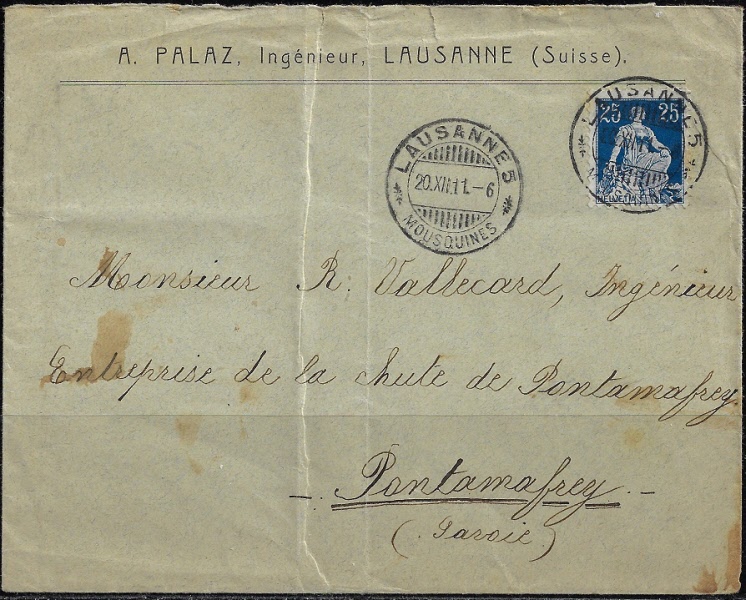 A. PALAZ, Ingénieur, LAUSANNE (Suisse).
LAUSANNE 5
20.XII.11.-6
MOUSQUINES
LAUSANNE 5
25 25
HELVETIA
Monsieur R. Vallecard, Ingénieur
Entreprise de la chute de Pontamafrey.
- Pontamafrey. -
(Savoie)